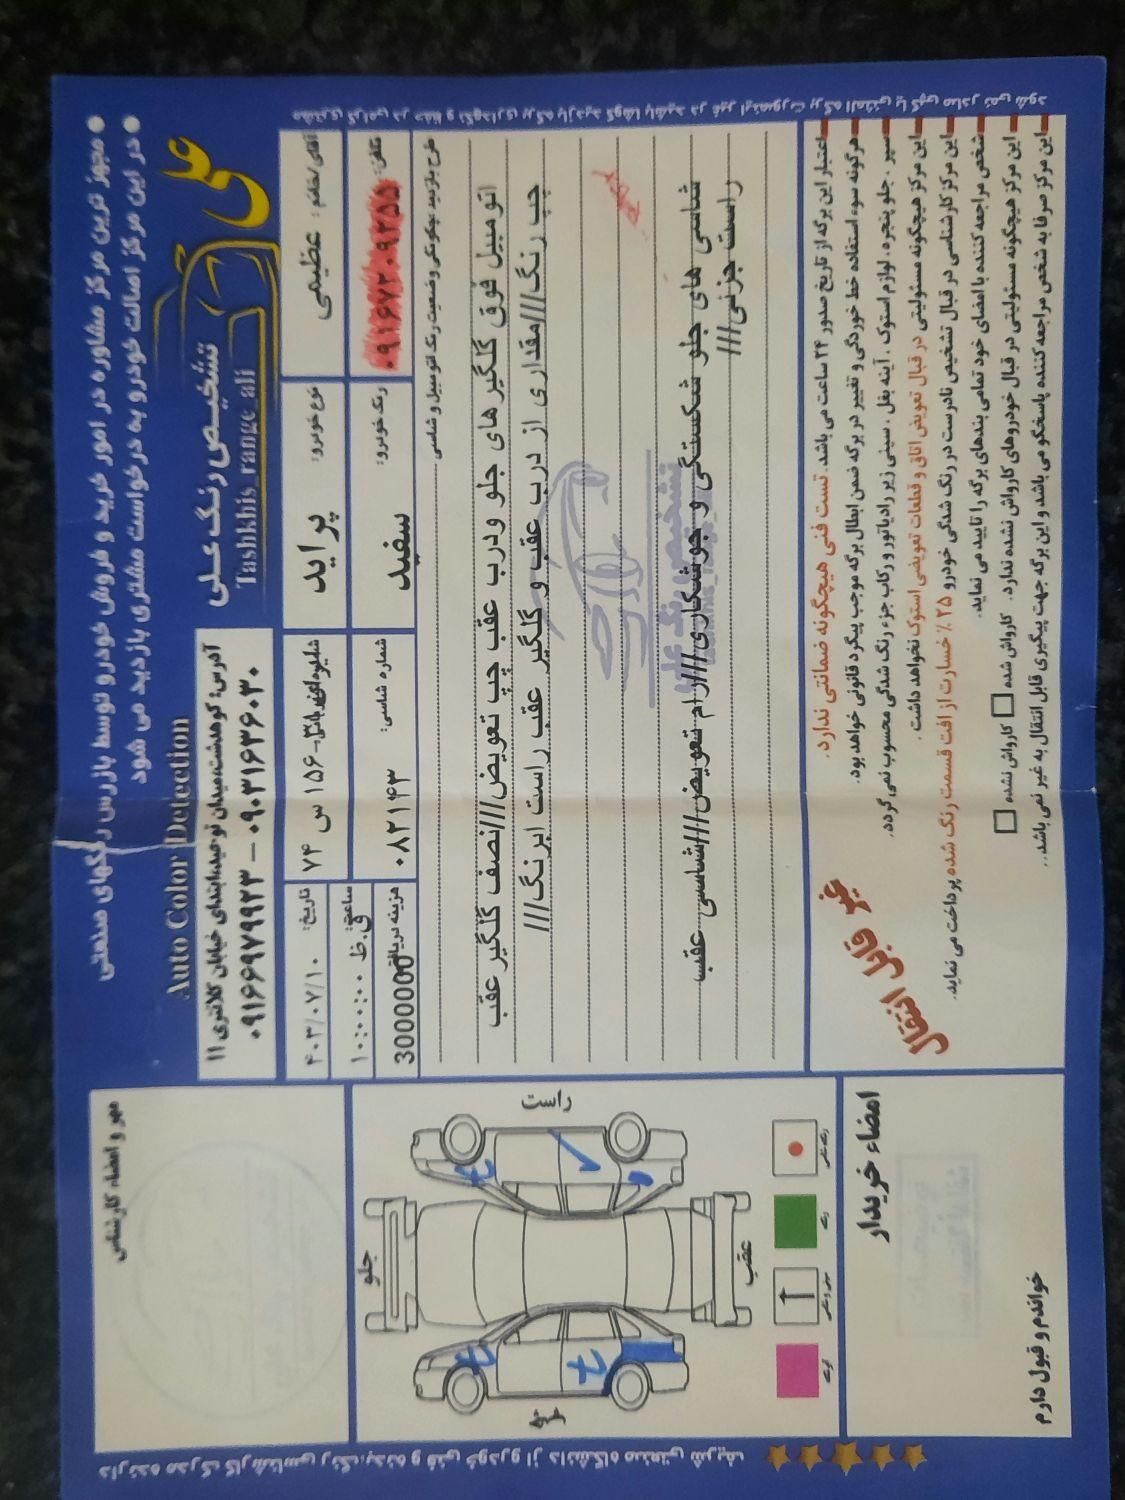 ● مجهز ترین مرکز مشاوره در امور خرید و فروش خودرو توسط بازرس رنگهای صنعتی
● در این مرکز اصالت خودرو به درخواست مشتری بازدید می شود
علی
تشخیص رنگ علی
Tashkhis_range_ali
Auto Color Detection
آدرس: کوهدشت،میدان توحید،ابتدای خیابان کلانتری ۱۱
۰۹۱۶۶۹۷۹۹۲۳ – ۰۹۰۳۱۶۳۶۰۳۰
آقای/خانم: عظیمی
نوع خودرو: پراید
۱۵۶ س ۷۴
تاریخ: ۴۰۳/۰۷/۱۰
ساعت: ۱۰:۰۰:۰۰ ق.ظ
تلفن: ۰۹۱۶۷۲۰۹۲۵۵
رنگ خودرو: سفید
شماره شاسی: ۰۸۲۱۴۳
هزینه دریافتی: 3000000
طرح بازدید چگونگی وضعیت رنگ اتومبیل و شاسی
اتومبیل فوق گلگیر های جلو ودرب عقب چپ تعویض///نصف گلگیر عقب
چپ رنگ///مقداری از درب عقب و گلگیر عقب راست ابرنگ///
تشخیص رنگ علی
شاسی های جلو شکستگی و جوشکاری///رام تعویض///شاسی عقب
راست جزئی///
اعتبار این برگه از تاریخ صدور ۲۴ ساعت می باشد. تست فنی هیچگونه ضمانتی ندارد.
هرگونه سوء استفاده خط خوردگی و تغییر در برگه ضمن ابطال برگه موجب پیگرد قانونی خواهد بود.
سپر ، جلو پنجره، لوازم استوک ، آینه بغل ، سینی زیر رادیاتور و رکاب جزء رنگ شدگی محسوب نمی گردد.
این مرکز هیچگونه مسئولیتی در قبال تعویض اتاق و قطعات تعویضی استوک نخواهد داشت .
این مرکز کارشناسی در قبال تشخیص نادرست در رنگ شدگی خودرو ۲۵٪ خسارت از افت قسمت رنگ شده پرداخت می نماید.
شخص مراجعه کننده با امضای خود تمامی بندهای برگه را تایید می نماید.
این مرکز هیچگونه مسئولیتی در قبال خودروهای کارواش نشده ندارد. کارواش شده □ کارواش نشده □
این مرکز صرفا به شخص مراجعه کننده پاسخگو می باشد و این برگه جهت پیگیری قابل انتقال به غیر نمی باشد..
غیر قابل انتقال
مهر و امضاء کارشناس
راست
جلو
عقب
چپ
ت
ت
ت
رنگ
امضاء خریدار
خواندم و قبول دارم
دارنده مدرک کارشناسی رنگ،بدنه و فنی خودرو از دانشگاه صنعتی شریف